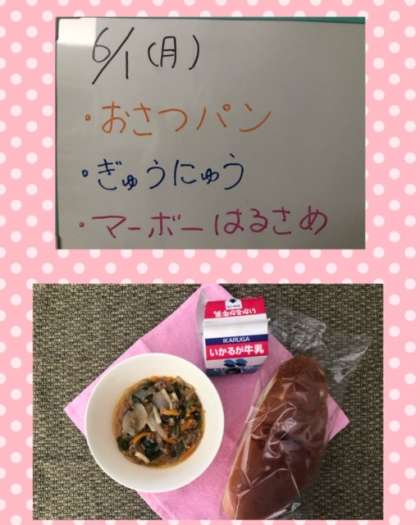 6/1(月)
・おさつパン
・ぎゅうにゅう
・マーボーはるさめ
いかるが牛乳
IKARUGA
いかるが牛乳